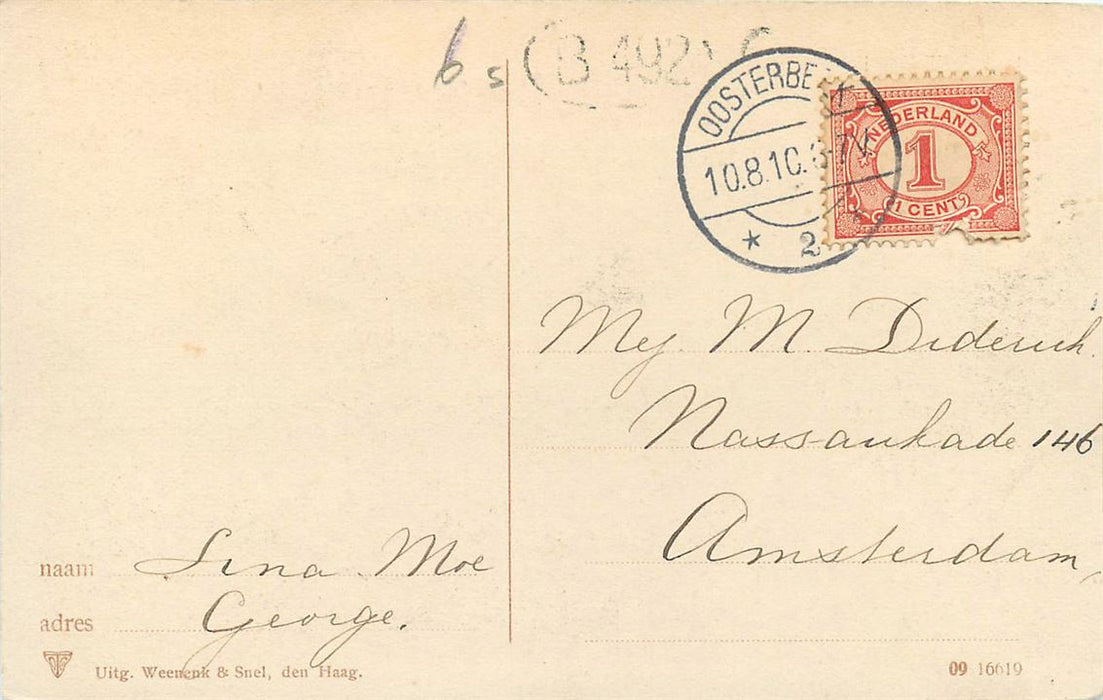 6 s (B 492)
OOSTERBEEK
10.8.10. 6-7N.
2
NEDERLAND
1
1 CENT
Mej. M. Diderich.
Nassaukade 146
Amsterdam,
naam Lina Moe
adres George.
Uitg. Weenenk & Snel, den Haag.
09 16619